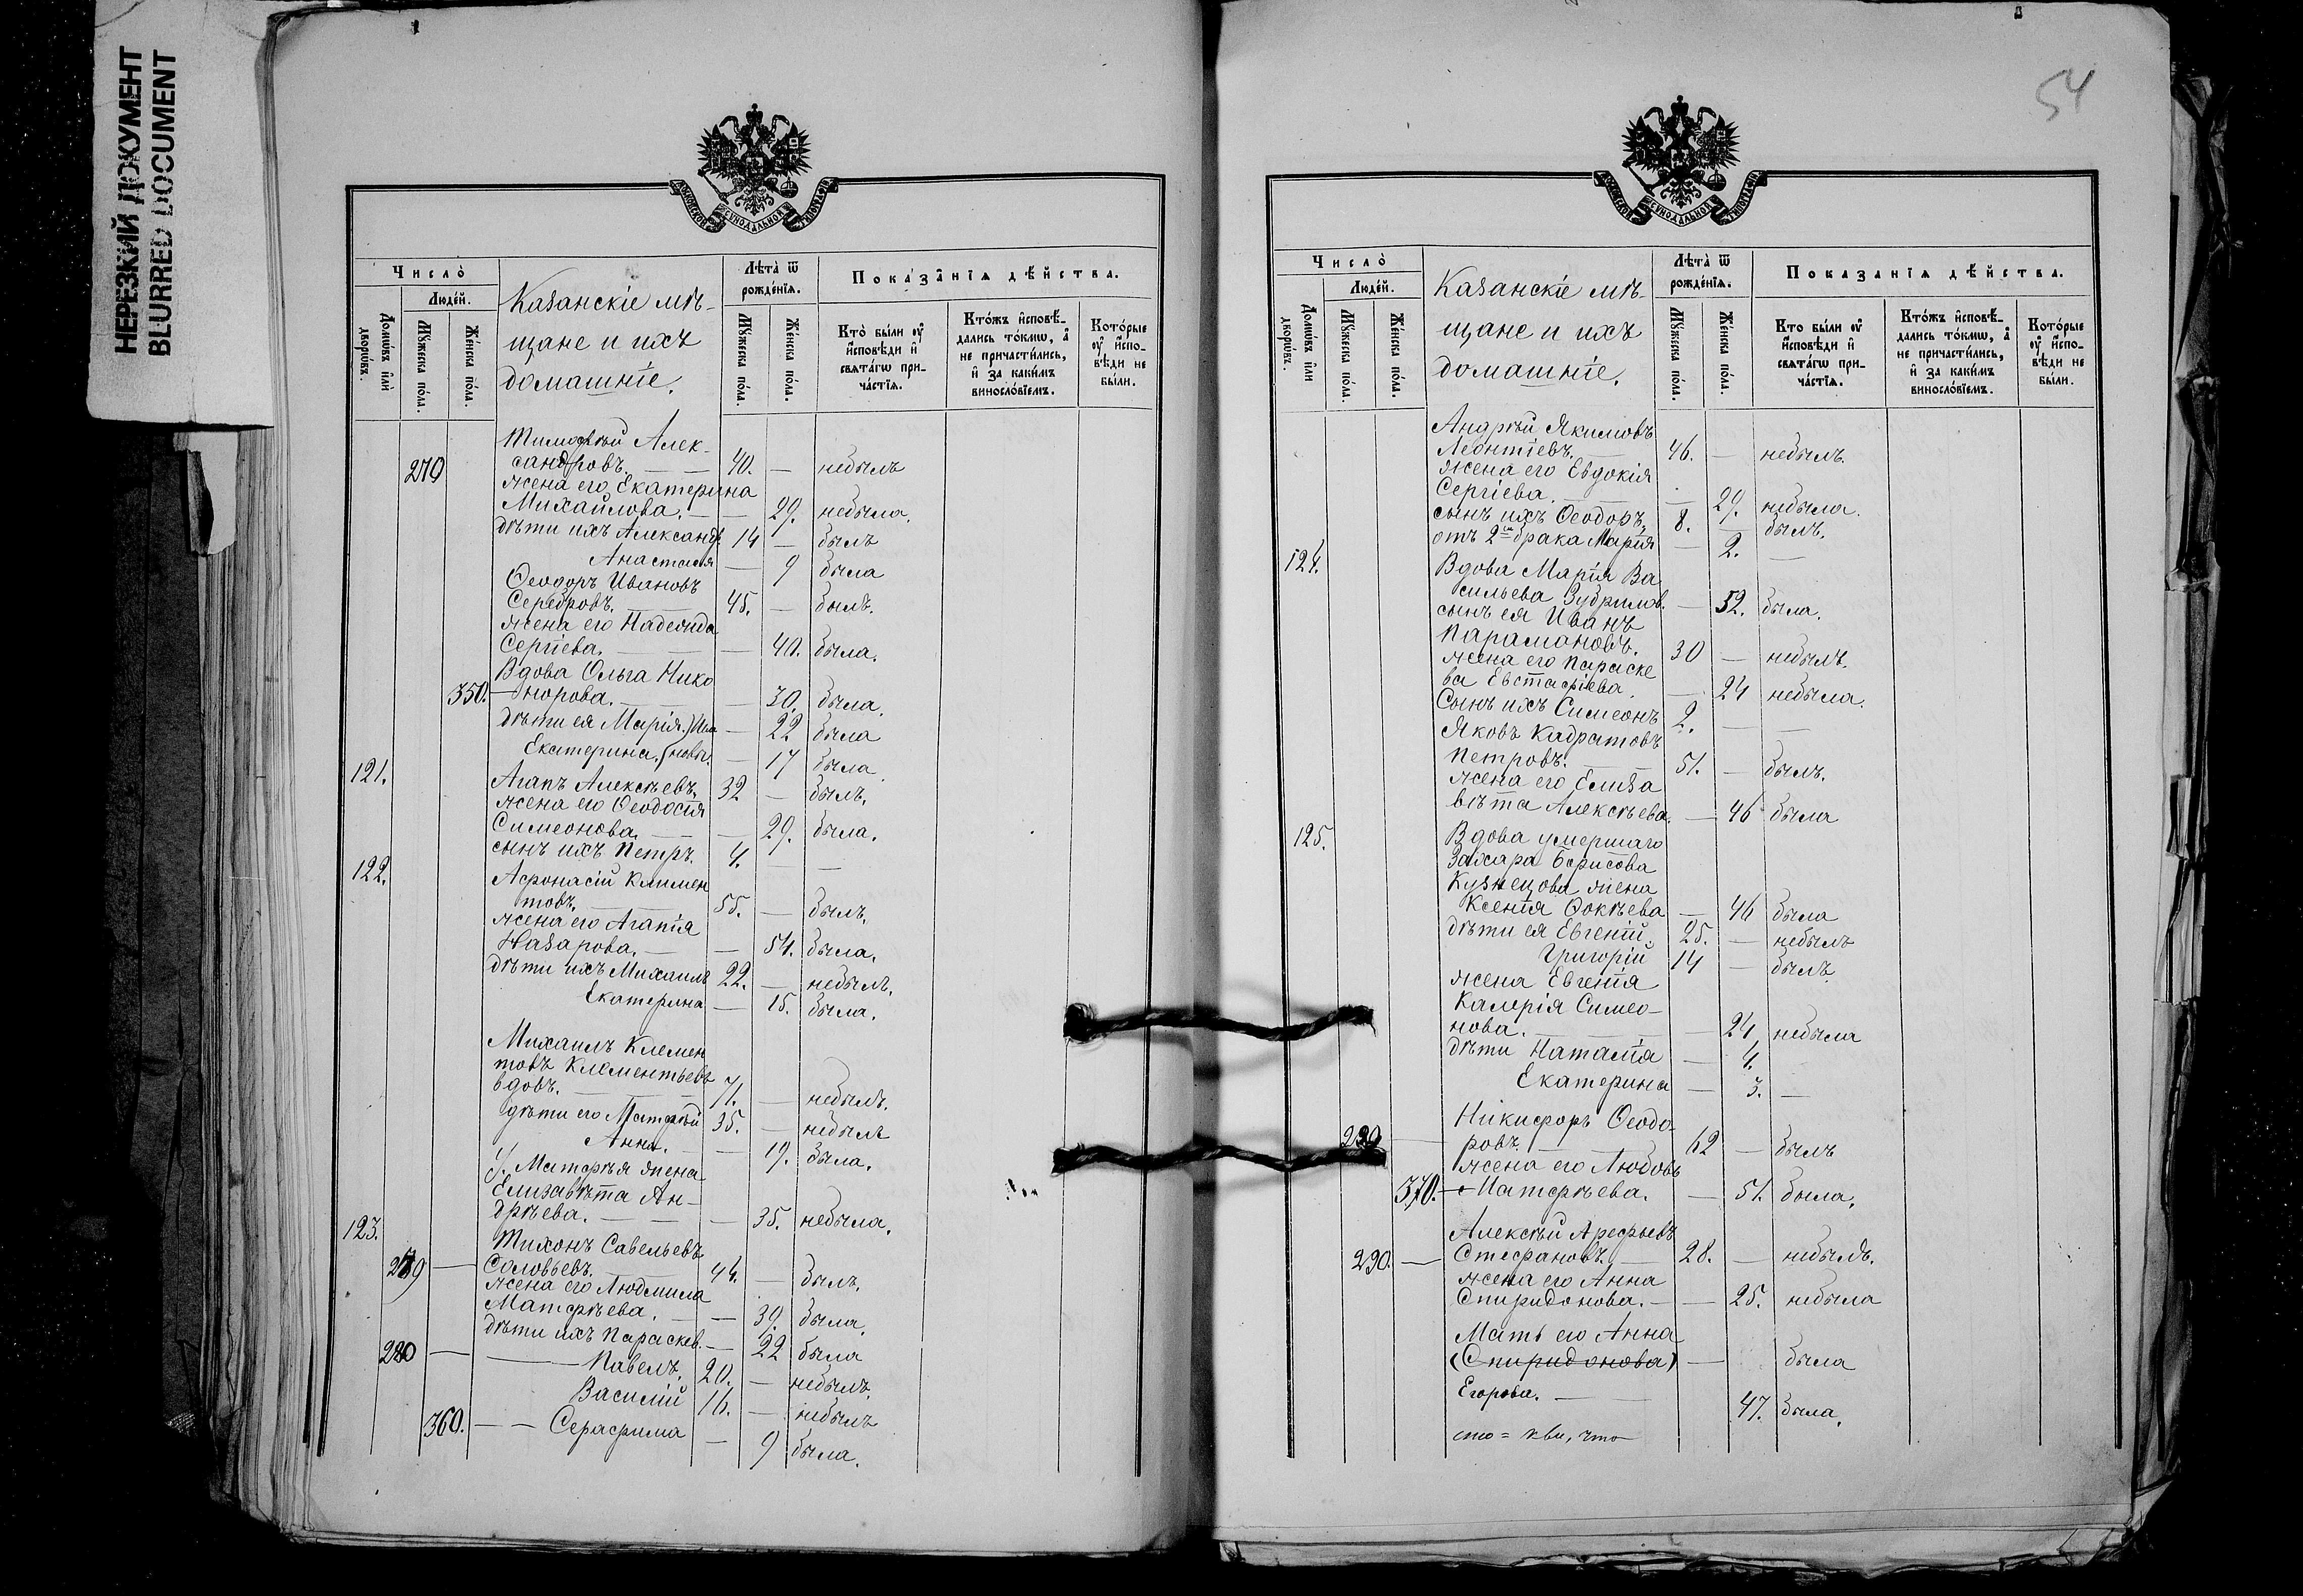 НЕРЕЗКИЙ ДОКУМЕНТ
BLURRED DOCUMENT
МОСКОВСКОЙ СѴНОДАЛЬНОЙ ТИПОГРАФІИ
Число̀
Людей.
Домѡ́въ и҆лѝ дворѡ́въ.
Мꙋ́жеска по́ла.
Же́нска по́ла.
Казанскіе мѣ-
щане и ихъ
домашніе.
Лѣта̀ ѿ рожде́нїѧ.
Мꙋ́жеска по́ла.
Же́нска по́ла.
Показа̑нїѧ дѣ́йства.
Кто̀ бы́ли ᲂу҆ и҆сповѣ́ди и҆ свѧта́гѡ при-ча́стїѧ.
Кто́жъ и҆сповѣ́-дались то́кмѡ, а҆ не причасти́лись, и҆ за каки́мъ виносло́вїемъ.
Кото́рые ᲂу҆ и҆спо-вѣ́ди не бы́ли.
Тимофѣй Алек-
270 сандровъ. — — 40. — небылъ
жена его Екатерина
Михайлова. — — 29. небыла.
дѣти ихъ Александръ 14 — былъ
Анастасія — 9 была
Ѳеодоръ Ивановъ
Серебровъ. — 45. — былъ.
жена его Надежда
Сергіева. — — 40. была.
Вдова Ольга Нико
350. — норова. — — 30. была.
дѣти ея Марія. — 22 была
Екатерина. — 17 была.
121. Агапъ Алексѣевъ. 32 — былъ.
жена его Ѳеодосія
Симеонова. — — 29. была.
сынъ ихъ Петръ. 4. — —
122. Афонасій Климен
товъ. — 55. — былъ.
жена его Агапія
Назарова. — — 54. была.
дѣти ихъ Михаилъ 22. — небылъ.
Екатерина — 15. была.
Михаилъ Клемен
товъ Клементьевъ
вдовъ. — — 71. — небылъ.
дѣти его Матфѣй 35. — небылъ
Анна. — — 19. была.
У. Матфѣя жена
Елизавѣта Ан-
дрѣева. — — — 35. небыла.
123. Тихонъ Савельевъ
Соловьевъ. — 44. — былъ.
жена его Людмила
Матфѣева. — — 39. была.
дѣти ихъ Параскев. — 22 была
280 — — Павелъ. 20. — небылъ.
Василій 16. — небылъ
360. — — Серафима — 9 была.
54
МОСКОВСКОЙ СѴНОДАЛЬНОЙ ТИПОГРАФІИ
Число̀
Людей.
Домѡ́въ и҆лѝ дворѡ́въ.
Мꙋ́жеска по́ла.
Же́нска по́ла.
Казанскіе мѣ-
щане и ихъ
домашніе.
Лѣта̀ ѿ рожде́нїѧ.
Мꙋ́жеска по́ла.
Же́нска по́ла.
Показа̑нїѧ дѣ́йства.
Кто бы́ли ᲂу҆ и҆сповѣ́ди и҆ свѧта́гѡ при-ча́стїѧ.
Кто́жъ и҆сповѣ́-дались то́кмѡ, а҆ не причасти́лись, и҆ за каки́мъ виносло́вїемъ.
Кото́рые ᲂу҆ и҆спо-вѣ́ди не бы́ли.
Андрѣй Якимовъ
Леонтіевъ. — 46. — небылъ.
жена его Евдокія
Сергіева. — — — 29. небыла.
сынъ ихъ Ѳеодоръ. 8. — былъ.
отъ 2го брака Марія — 2. —
124. Вдова Марія Ва
сильева Зубрилов. — 52. была.
сынъ ея Иванъ
Парамоновъ. 30 — небылъ.
жена его Параске
ва Евстафіева. — 24 небыла.
Сынъ ихъ Симеонъ 2. — —
Яковъ Кадратовъ
Петровъ. — 51. — былъ.
жена его Елиза
вѣта Алексѣева. — 46 была
125. Вдова умершаго
Захара Борисова
Кузнецова жена
Ксенія Фокѣева — 46 была
дѣти ея Евгеній. 25. — небылъ
Григорій 14 — былъ.
жена Евгенія
Калерія Симео-
нова. — — 24 небыла
дѣти Наталія — 4.
Екатерина — 3. —
Никифоръ Ѳеодо-
ровъ. — 62 — былъ
жена его Любовь
370. — Матфѣева. — 51. была.
Алексѣй Арефьевъ
290. — Стефановъ. — 28. — небылъ.
жена его Анна
Спиридонова. — — 25. небыла
Мать его Анна
(Спиридонова) — была
Егорова. — 47. была.